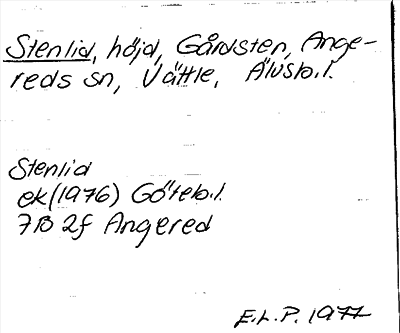 Stenlid, höjd, Gårdsten, Ange-
reds sn, Vättle, Älvsb.l.
Stenlid
ek (1976) Göteb.l.
7B 2f Angered
E.L.P. 1977